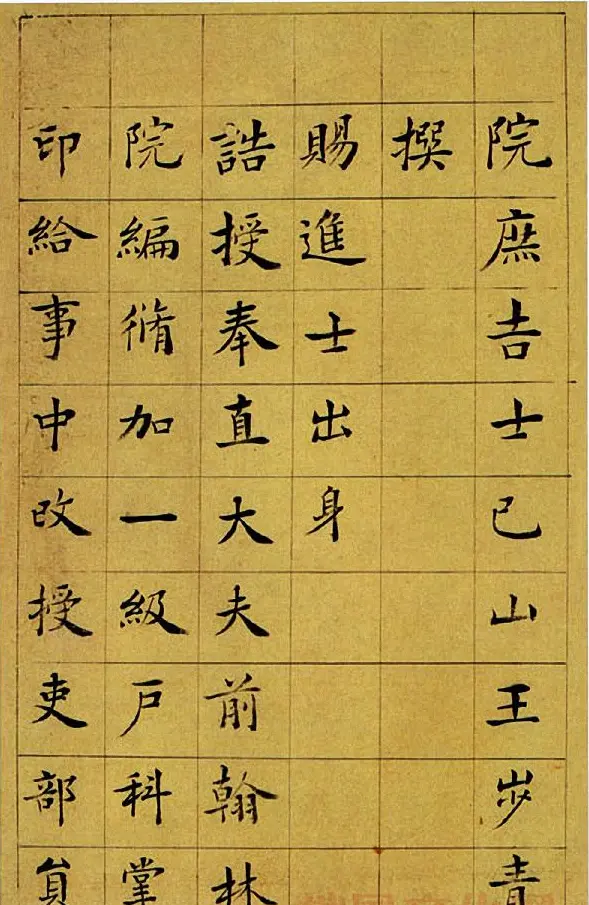 院庶吉士巳山王步青
撰
賜進士出身
誥授奉直大夫前翰林
院編脩加一級戶科掌
印給事中改授吏部員